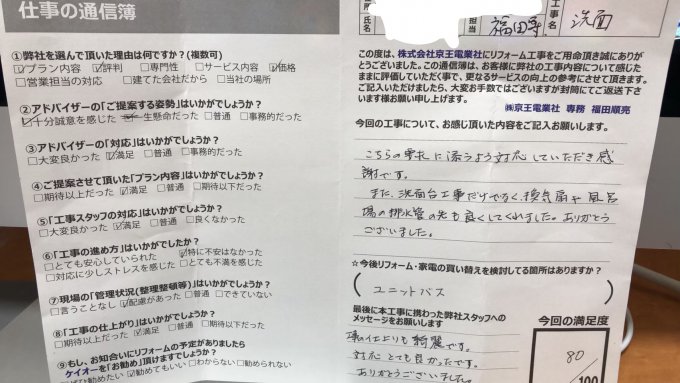 仕事の通信簿
氏名
担当 福田專
工事名 洗面
①弊社を選んで頂いた理由は何ですか?(複数可)
☑プラン内容 ☑評判 □専門性 □サービス内容 ☑価格
□営業担当の対応 □建てた会社だから □当社の場所
②アドバイザーの「ご提案する姿勢」はいかがでしょうか?
☑十分誠意を感じた ☑一生懸命だった □普通 □事務的だった
③アドバイザーの「対応」はいかがでしょうか?
□大変良かった ☑満足 □普通 □事務的だった
④ご提案させて頂いた「プラン内容」はいかがでしょうか?
□期待以上だった ☑満足 □普通 □期待以下だった
⑤「工事スタッフの対応」はいかがでしょうか?
□大変良かった ☑満足 □普通 □良くなかった
⑥「工事の進め方」はいかがでしたか?
□とても安心していられた ☑特に不安はなかった
□対応に少しストレスを感じた □とても不満を感じた
⑦現場の「管理状況(整理整頓等)」はいかがでしたか?
□言うことなし ☑配慮があった □普通 □できていない
⑧「工事の仕上がり」はいかがでしたか?
□期待以上だった ☑満足 □普通 □期待以下だった
⑨もし、お知合いにリフォームの予定がありましたら
ケイオーを「お勧め」頂けますでしょうか?
□ぜひ勧めたい ☑勧めてもいい □わからない □勧められない
この度は、株式会社京王電業社にリフォーム工事をご用命頂き誠にありが
とうございました。この通信簿は、お客様に弊社の工事内容について感じた
ままに評価していただく事で、更なるサービスの向上の参考にさせて頂きます。
ご記入いただけましたら、大変お手数ではございますが封筒にてご返送下さ
います様お願い申し上げます。
㈱京王電業社 専務 福田順亮
今回の工事について、お感じ頂いた内容をご記入お願いします。
こちらの要求に添うよう対応していただき感
謝です。
また、洗面台工事だけでなく、換気扇や風呂
場の排水管の先も良くしてくれました。ありがとう
ございました。
☆今後リフォーム・家電の買い替えを検討してる箇所はありますか?
(ユニットバス )
最後に本工事に携わった弊社スタッフへの
メッセージをお願いします
事の仕上りも綺麗です。
対応とても良かったです。
ありがとうございました。
今回の満足度
80
/100